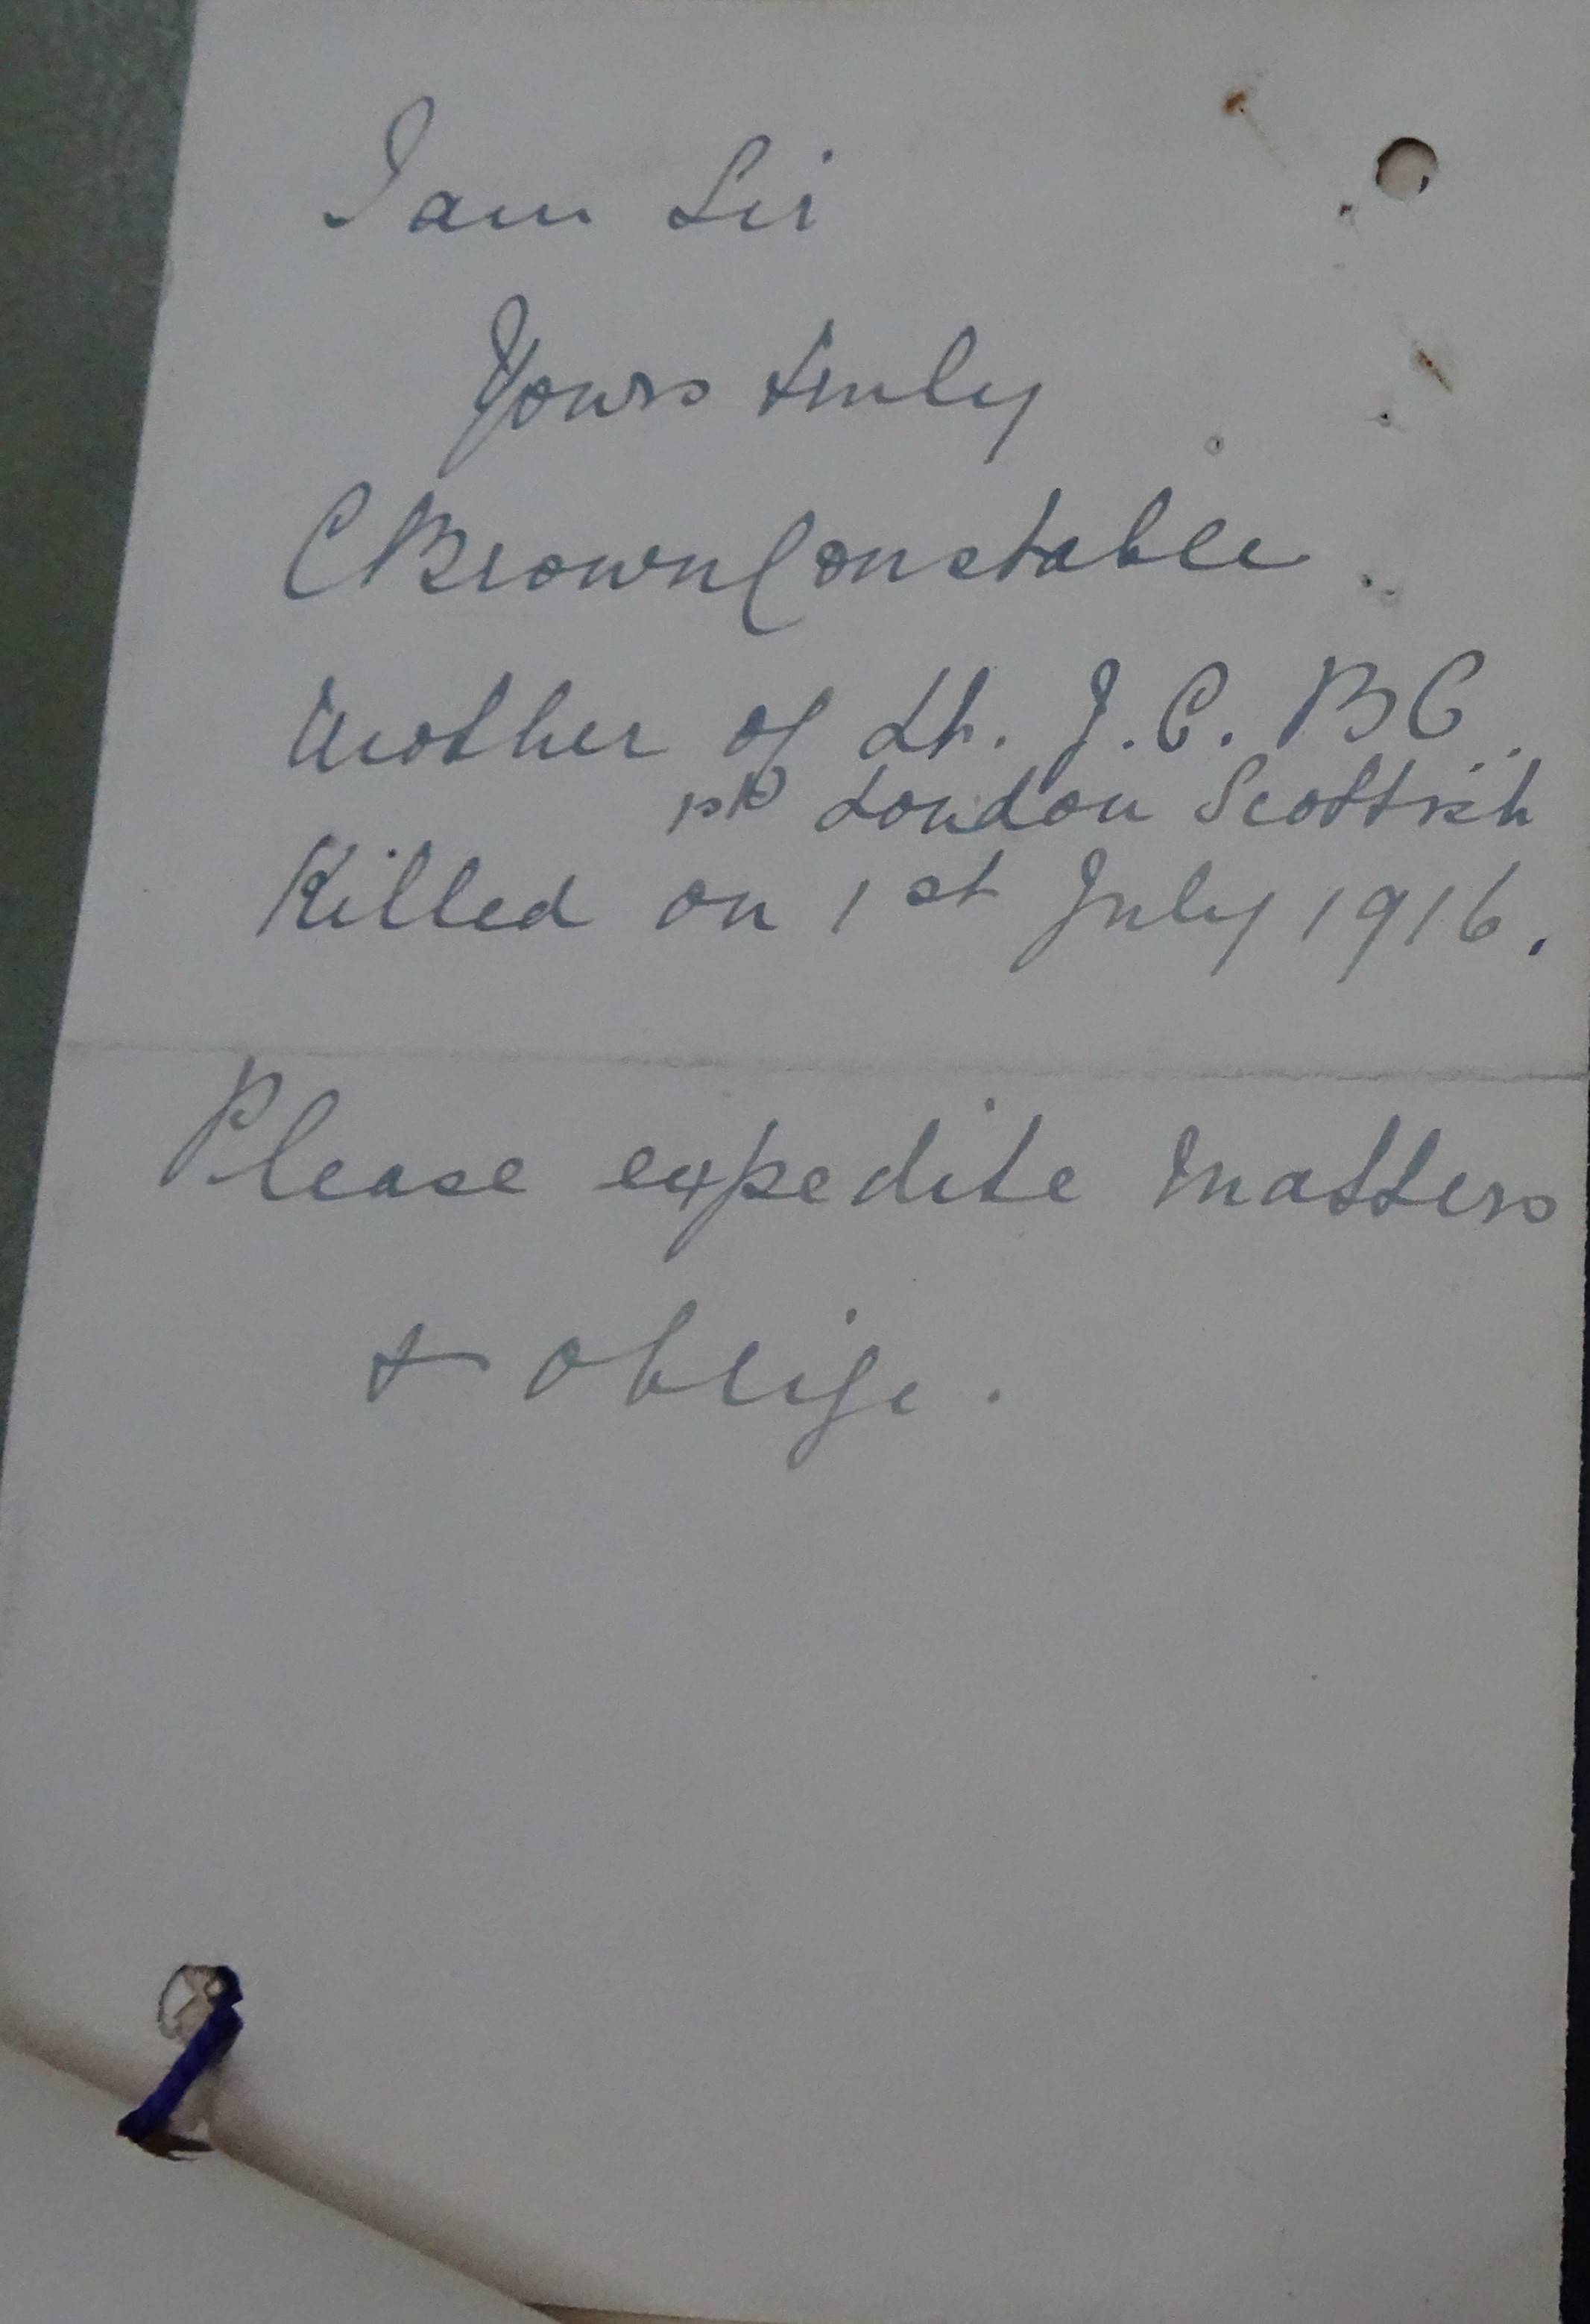 I am Sir
Yours truly
C Brown Constable
Mother of Lt. J. C. B C
1st London Scottish
Killed on 1st July 1916.
Please expedite matters
& oblige.